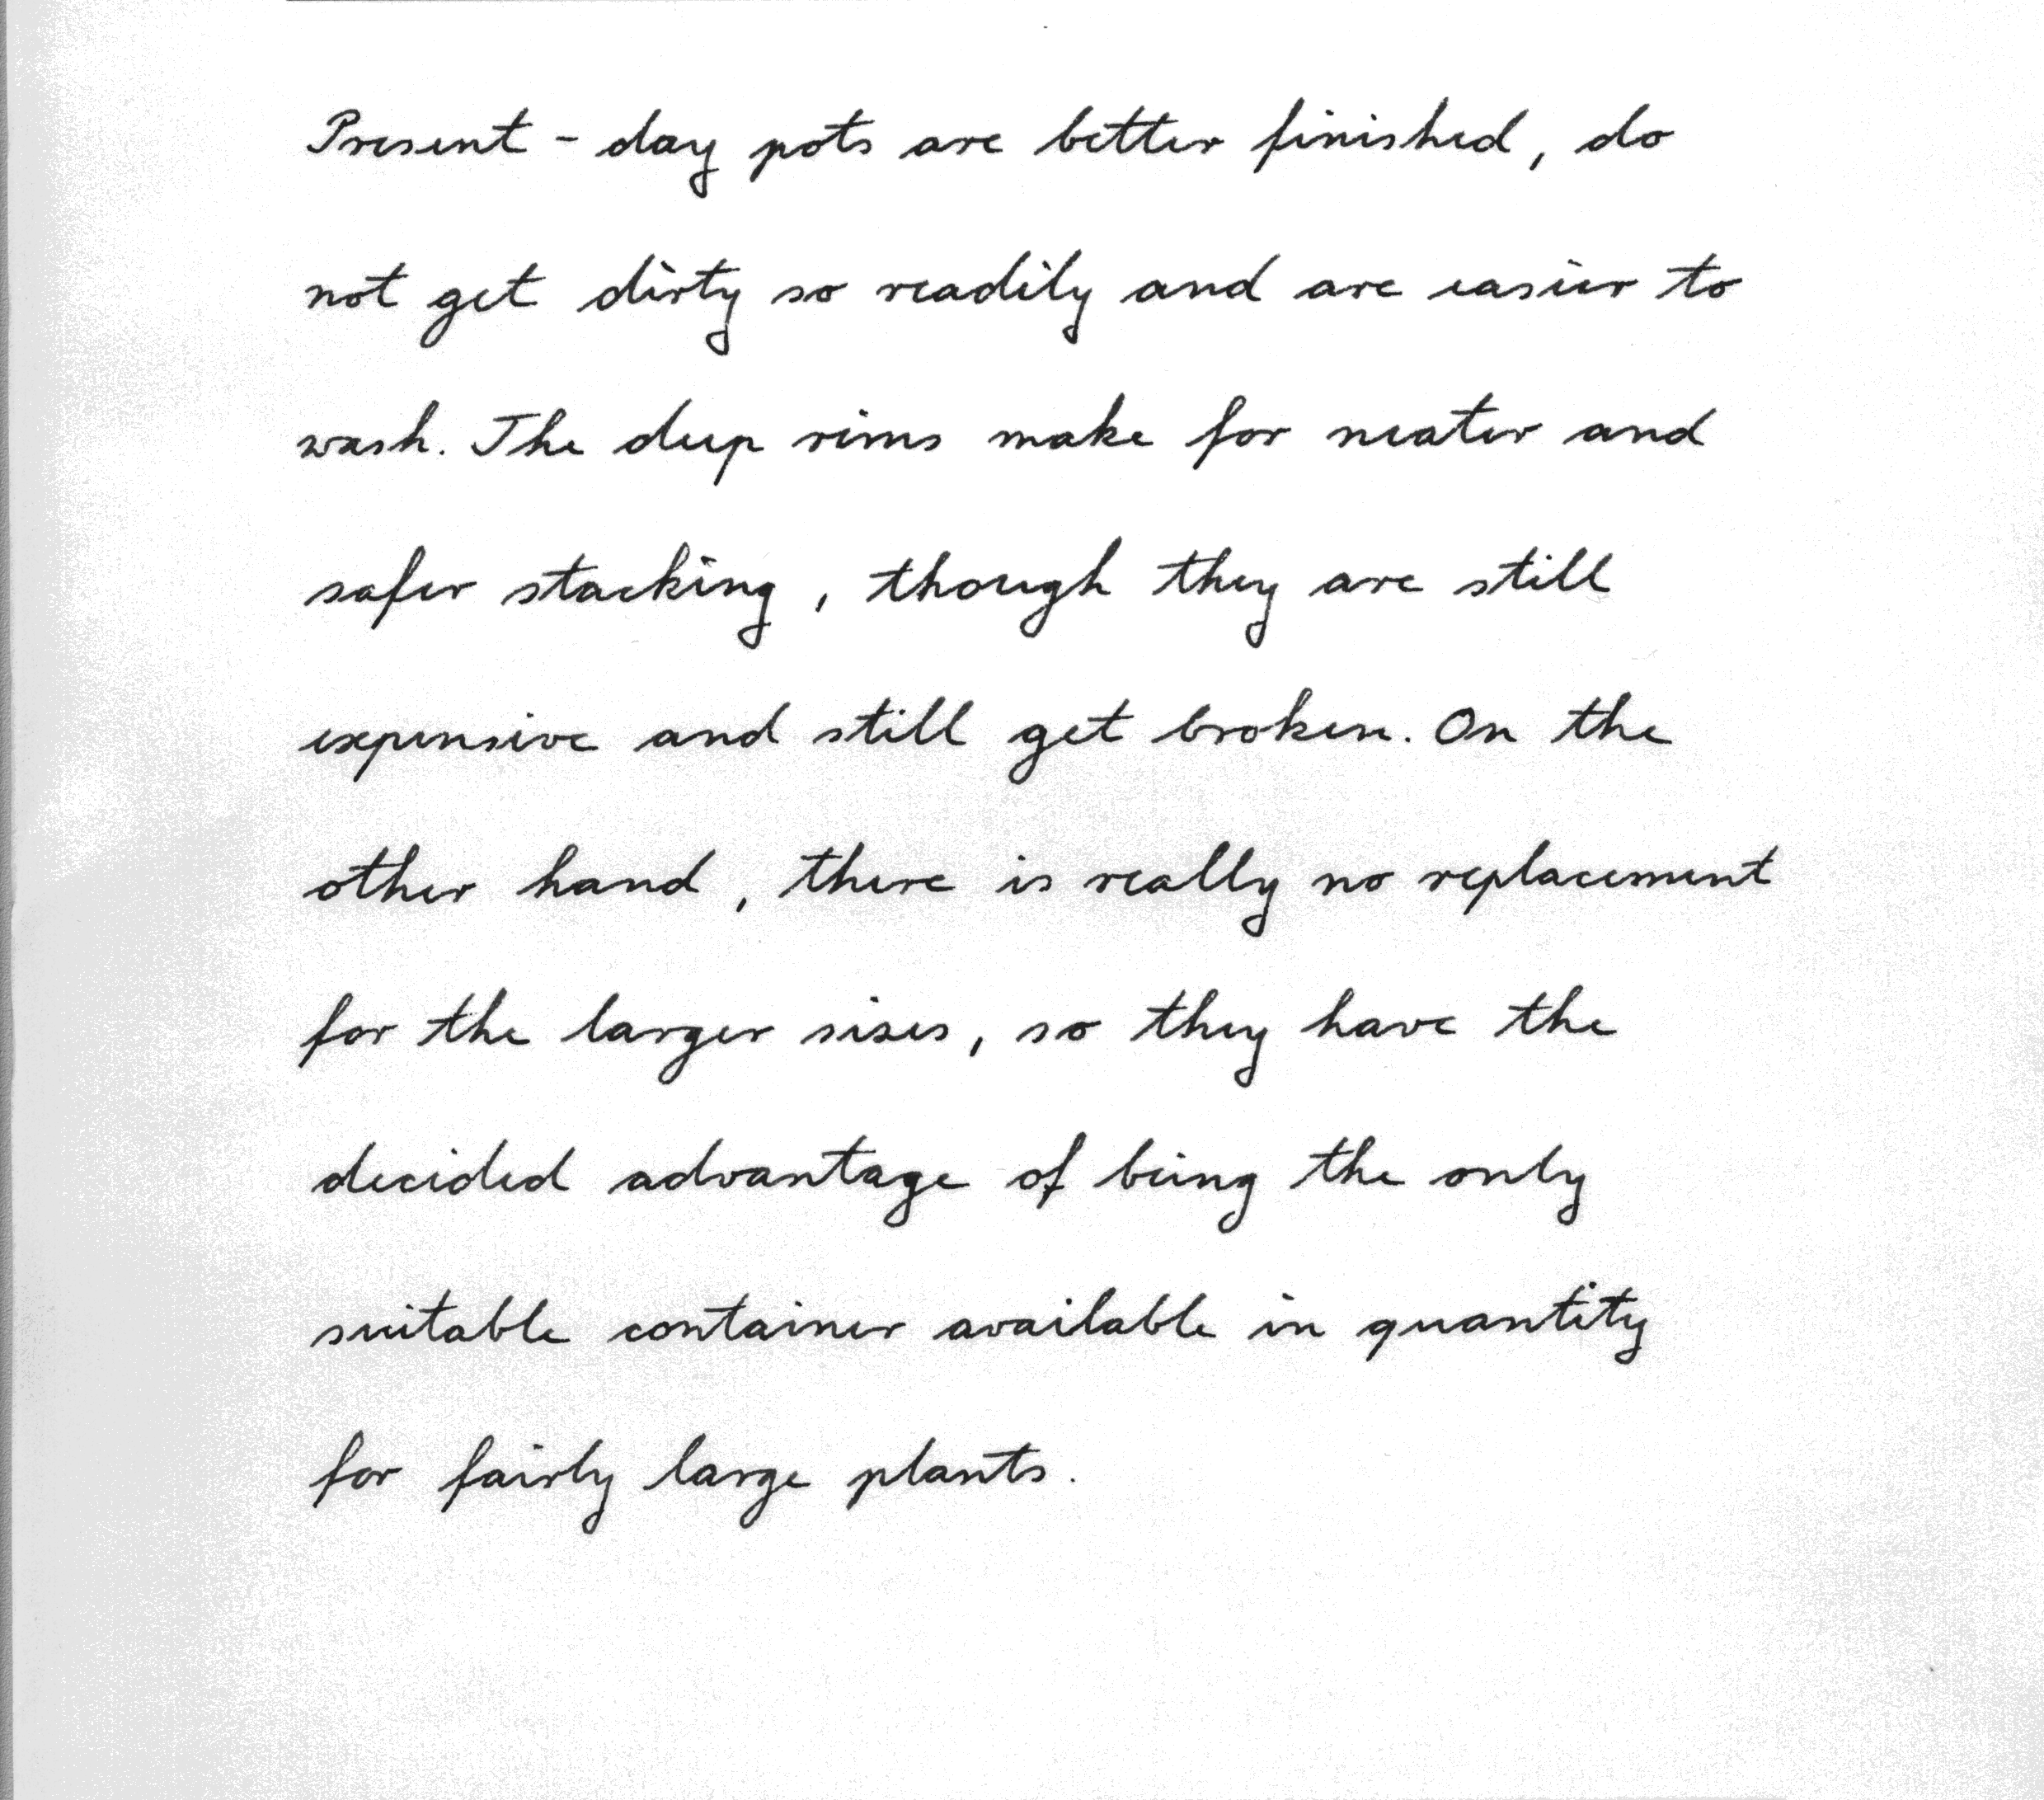 Present - day pots are better finished, do
not get dirty so readily and are easier to
wash. The deep rims make for neater and
safer stacking, though they are still
expensive and still get broken. On the
other hand, there is really no replacement
for the larger sizes, so they have the
decided advantage of being the only
suitable container available in quantity
for fairly large plants.